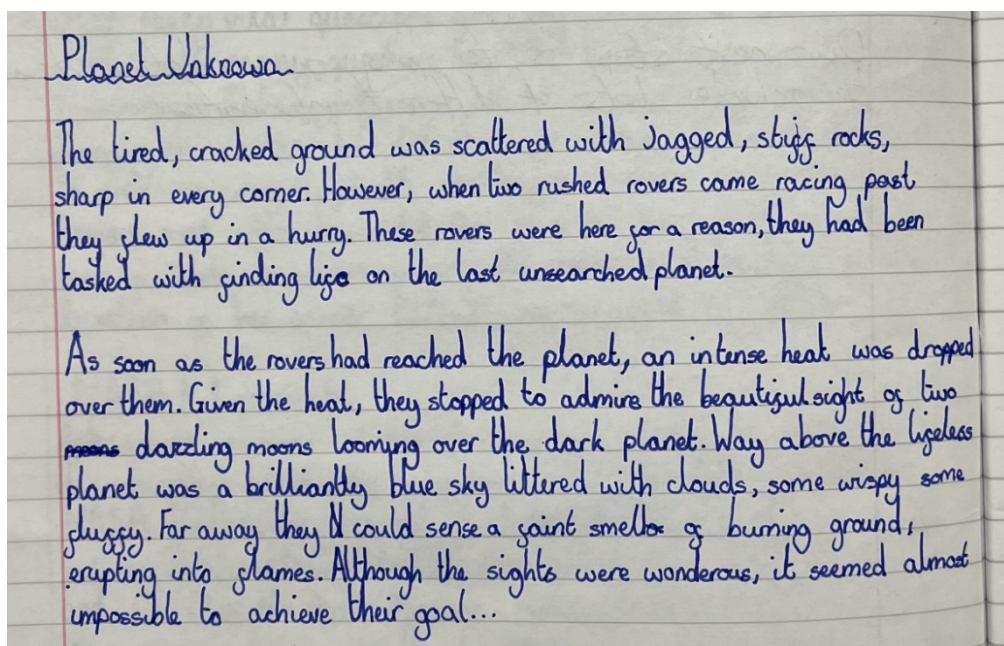 Planet Unknown
The tired, cracked ground was scattered with jagged, stiff rocks,
sharp in every corner. However, when two rushed rovers came racing past
they flew up in a hurry. These rovers were here for a reason, they had been
tasked with finding life on the last unsearched planet.
As soon as the rovers had reached the planet, an intense heat was dropped
over them. Given the heat, they stopped to admire the beautiful sight of two
moons dazzling moons looming over the dark planet. Way above the lifeless
planet was a brilliantly blue sky littered with clouds, some wispy some
fluffy. Far away they could sense a faint smell of burning ground,
erupting into flames. Although the sights were wonderous, it seemed almost
impossible to achieve their goal...